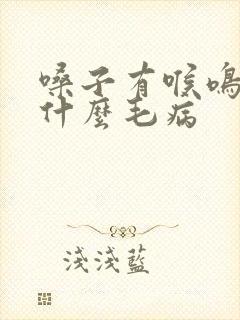 嗓子有喉鳴
什麼毛病
淺淺藍